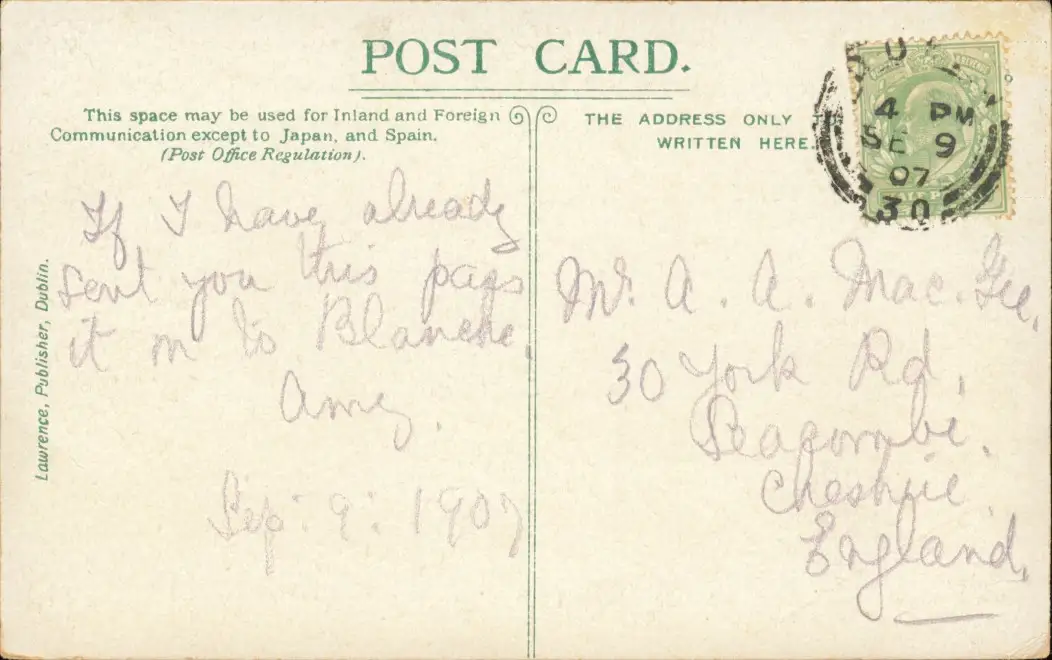 POST CARD.
This space may be used for Inland and Foreign
Communication except to Japan, and Spain.
(Post Office Regulation).
THE ADDRESS ONLY
WRITTEN HERE.
4 PM
SE 9
07
30
If I have already
sent you this pass
it on to Blanche.
Amy.
Sep: 9: 1907
Mr. A. A. Mac. Gee.
30 York Rd,
Seacombe.
Cheshire
England,
Lawrence, Publisher, Dublin.